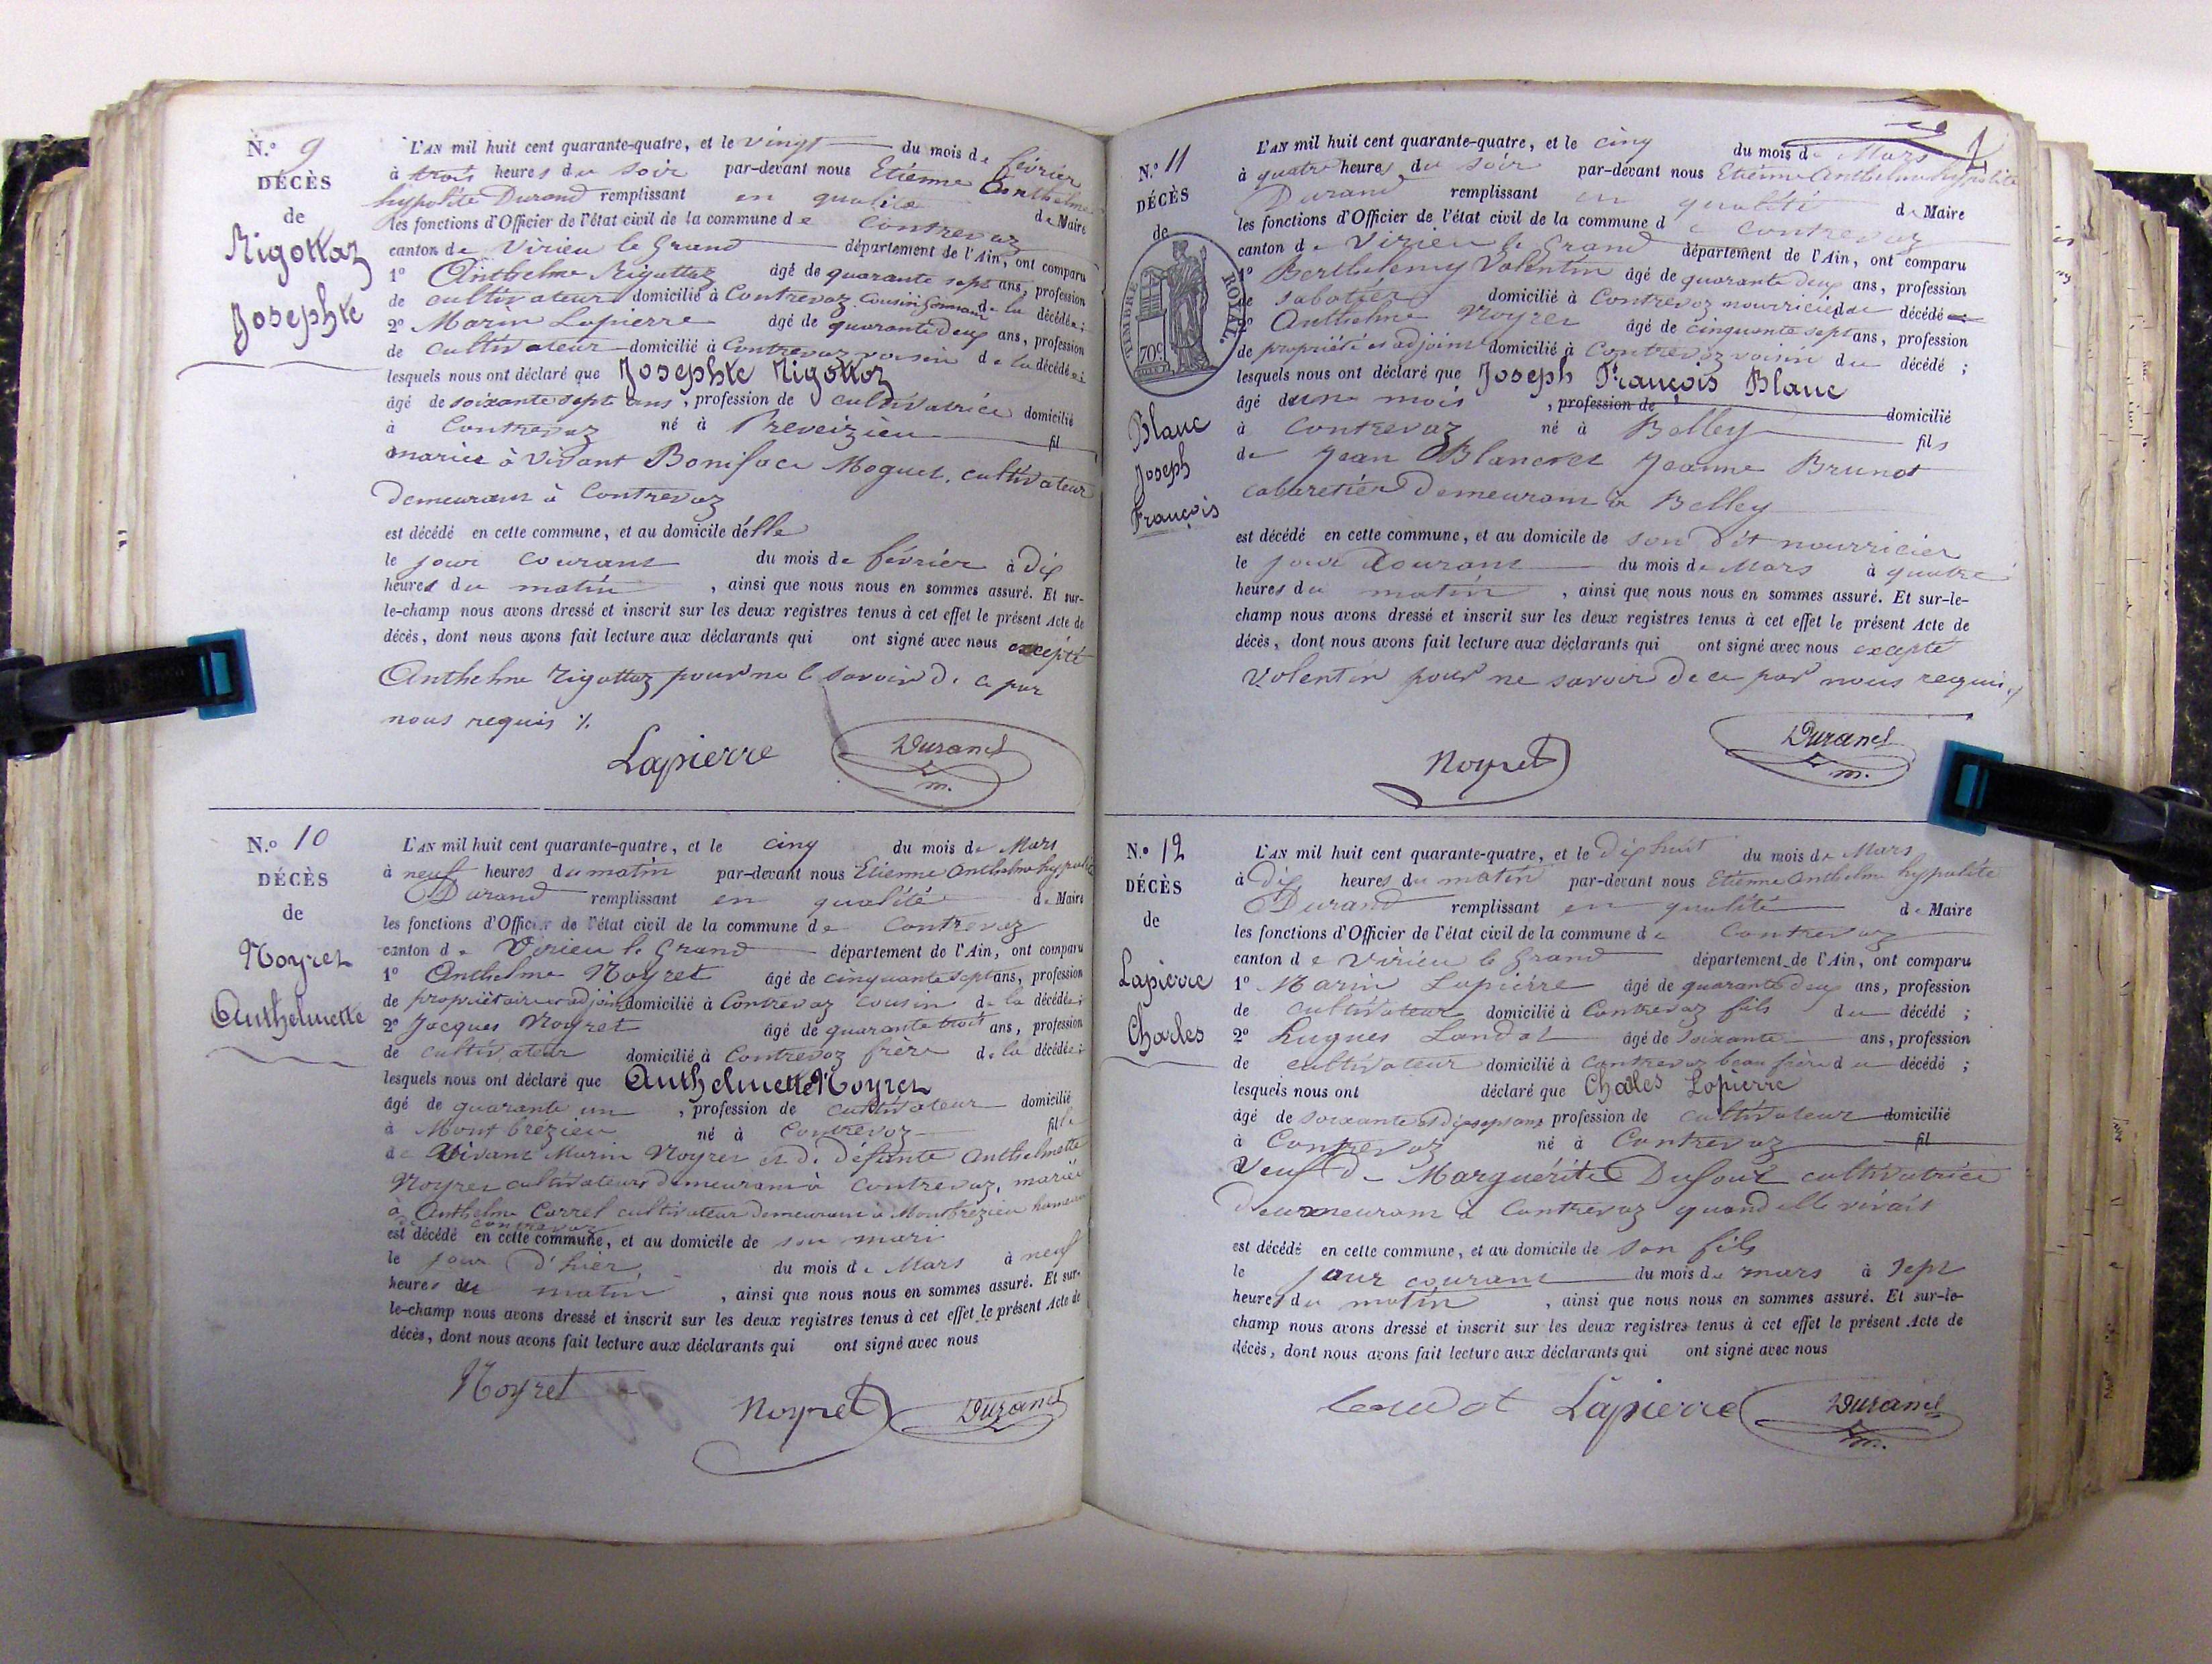 N.º 9
DÉCÈS
de
Rigottaz
Josephte
L'AN mil huit cent quarante-quatre, et le vingt du mois de février
à trois heures du soir par-devant nous Etienne Anthelme
hypolite Durand remplissant en qualité de Maire
les fonctions d'Officier de l'état civil de la commune de Contrevoz
canton de Virieu le Grand département de l'Ain, ont comparu
1º Anthelme Rigottaz âgé de quarante sept ans, profession
de cultivateur domicilié à Contrevoz cousin germain de la décédée;
2º Marin Lapierre âgé de quarante deux ans, profession
de cultivateur domicilié à Contrevoz voisin de la décédée;
lesquels nous ont déclaré que Josephte Rigottaz
âgé de soixante sept ans, profession de cultivatrice domicilié
à Contrevoz né à Preveizieu fil
mariée à vivant Boniface Moguet, cultivateur
demeurant à Contrevoz
est décédé en cette commune, et au domicile d'elle
le jour courant du mois de février à dix
heures du matin, ainsi que nous nous en sommes assuré. Et sur-
le-champ nous avons dressé et inscrit sur les deux registres tenus à cet effet le présent Acte de
décès, dont nous avons fait lecture aux déclarants qui ont signé avec nous excepté
Anthelme Rigottaz pour ne le savoir de ce par
nous requis ./.
Lapierre Durand
m.
N.º 10
DÉCÈS
de
Noyret
Anthelmette
L'AN mil huit cent quarante-quatre, et le cinq du mois de Mars
à neuf heures du matin par-devant nous Etienne Anthelme hypolite
Durand remplissant en qualité de Maire
les fonctions d'Officier de l'état civil de la commune de Contrevoz
canton de Virieu le Grand département de l'Ain, ont comparu
1º Anthelme Noyret âgé de cinquante sept ans, profession
de propriétaire et adjoint domicilié à Contrevoz cousin de la décédée;
2º Jacques Noyret âgé de quarante trois ans, profession
de cultivateur domicilié à Contrevoz frère de la décédée;
lesquels nous ont déclaré que Anthelmette Noyret
âgé de quarante un, profession de cultivateur domicilié
à Montbrézieu né à Contrevoz fille
de vivant Marin Noyret et de défunte Anthelmette
Noyret cultivateurs demeurant à Contrevoz, mariée
à Anthelme Carrel cultivateur demeurant à Montbrézieu hameau
de Contrevoz
est décédé en cette commune, et au domicile de son mari
le jour d'hier du mois de Mars à neuf
heures du matin, ainsi que nous nous en sommes assuré. Et sur-
le-champ nous avons dressé et inscrit sur les deux registres tenus à cet effet le présent Acte de
décès, dont nous avons fait lecture aux déclarants qui ont signé avec nous
Noyret Noyret Durand
N.º 11
DÉCÈS
de
TIMBRE ROYAL.
70c
Blanc
Joseph
François
L'AN mil huit cent quarante-quatre, et le cinq du mois de Mars
à quatre heures du soir par-devant nous Etienne Anthelme hypolite
Durand remplissant en qualité de Maire
les fonctions d'Officier de l'état civil de la commune de Contrevoz
canton de Virieu le Grand département de l'Ain, ont comparu
1º Berthelemy Valentin âgé de quarante deux ans, profession
de sabotier domicilié à Contrevoz nourricier du décédé
2º Anthelme Noyret âgé de cinquante sept ans, profession
de propriété et adjoint domicilié à Contrevoz voisin du décédé;
lesquels nous ont déclaré que Joseph François Blanc
âgé de un mois, profession de domicilié
à Contrevoz né à Belley fils
de Jean Blanc et Jeanne Brunot
cabaretier demeurant à Belley
est décédé en cette commune, et au domicile de son dit nourricier
le jour courant du mois de Mars à quatre
heures du matin, ainsi que nous nous en sommes assuré. Et sur-le-
champ nous avons dressé et inscrit sur les deux registres tenus à cet effet le présent Acte de
décès, dont nous avons fait lecture aux déclarants qui ont signé avec nous excepté
Valentin pour ne savoir de ce par nous requis
Noyret Durand
m.
N.º 12
DÉCÈS
de
Lapierre
Charles
L'AN mil huit cent quarante-quatre, et le dix huit du mois de Mars
à dix heures du matin par-devant nous Etienne Anthelme hypolite
Durand remplissant en qualité de Maire
les fonctions d'Officier de l'état civil de la commune de Contrevoz
canton de Virieu le Grand département de l'Ain, ont comparu
1º Marin Lapierre âgé de quarante deux ans, profession
de cultivateur domicilié à Contrevoz fils du décédé;
2º hugues Landot âgé de soixante ans, profession
de cultivateur domicilié à Contrevoz beau frère du décédé;
lesquels nous ont déclaré que Charles Lapierre
âgé de soixante et dix sept ans profession de cultivateur domicilié
à Contrevoz né à Contrevoz fil
veuf de Marguérite Dufour cultivatrice
demeurant à Contrevoz quand elle vivait
est décédé en cette commune, et au domicile de son fils
le jour courant du mois de mars à sept
heures du matin, ainsi que nous nous en sommes assuré. Et sur-le-
champ nous avons dressé et inscrit sur les deux registres tenus à cet effet le présent Acte de
décès, dont nous avons fait lecture aux déclarants qui ont signé avec nous
Landot Lapierre Durand
m.